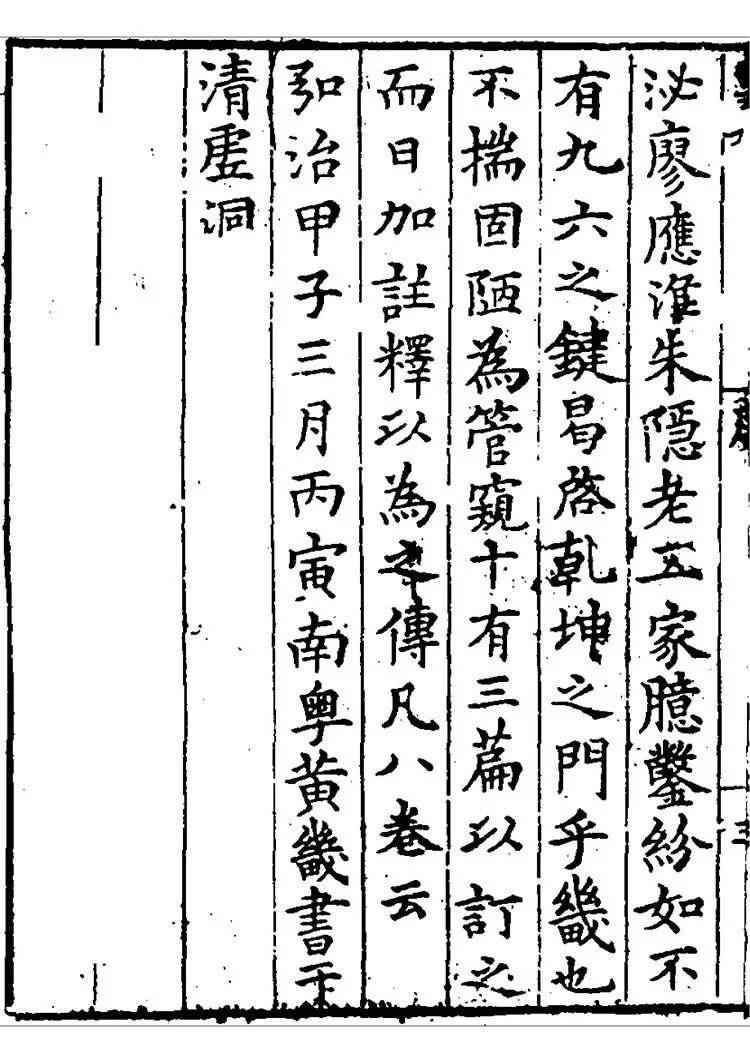 泌廖應淮朱隱老五家臆鑿紛如不
有九六之鍵曷啓乾坤之門乎畿也
不揣固陋為管窺十有三篇以訂之
而日加註釋以為之傳凡八卷云
弘治甲子三月丙寅南粵黃畿書于
清虛洞